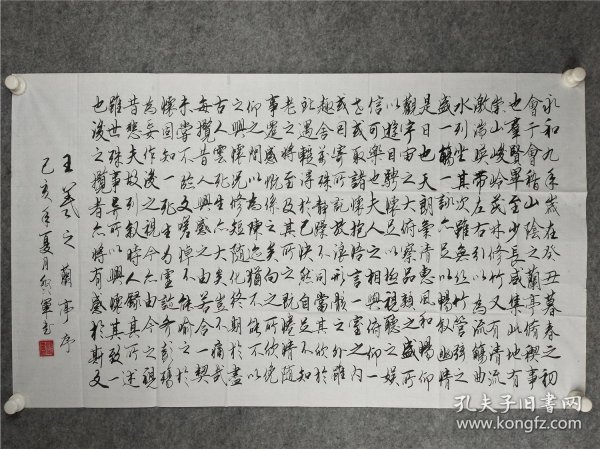 永和九年歲在癸丑暮春之初
會于會稽山陰之蘭亭脩禊事
也羣賢畢至少長咸集此地有
崇山峻領茂林修竹又有清流
激湍暎帶左右引以為流觴曲
水列坐其次雖無絲竹管弦之
盛一觴一詠亦足以暢叙幽情
是日也天朗氣清惠風和暢仰
觀宇宙之大俯察品類之盛所
以遊目騁懷足以極視聽之娛
信可樂也夫人之相與俯仰一
世或取諸懷抱悟言一室之內
或因寄所託放浪形骸之外雖
趣舍萬殊靜躁不同當其欣於
所遇暫得於己快然自足不知
老之將至及其所之既惓情隨
事遷感慨係之矣向之所欣俛
仰之間以為陳迹猶不能不以
之興懷況修短隨化終期於盡
古人云死生亦大矣豈不痛哉
每攬昔人興感之由若合一契
未嘗不臨文嗟悼不能喻之於
懷固知一死生為虛誕齊彭殤
為妄作後之視今亦由今之視
昔悲夫故列叙時人錄其所述
雖世殊事異所以興懷其致一
也後之攬者亦將有感於斯文
王羲之蘭亭序
己亥年夏月軍書
孔夫子旧书网
www.kongfz.com